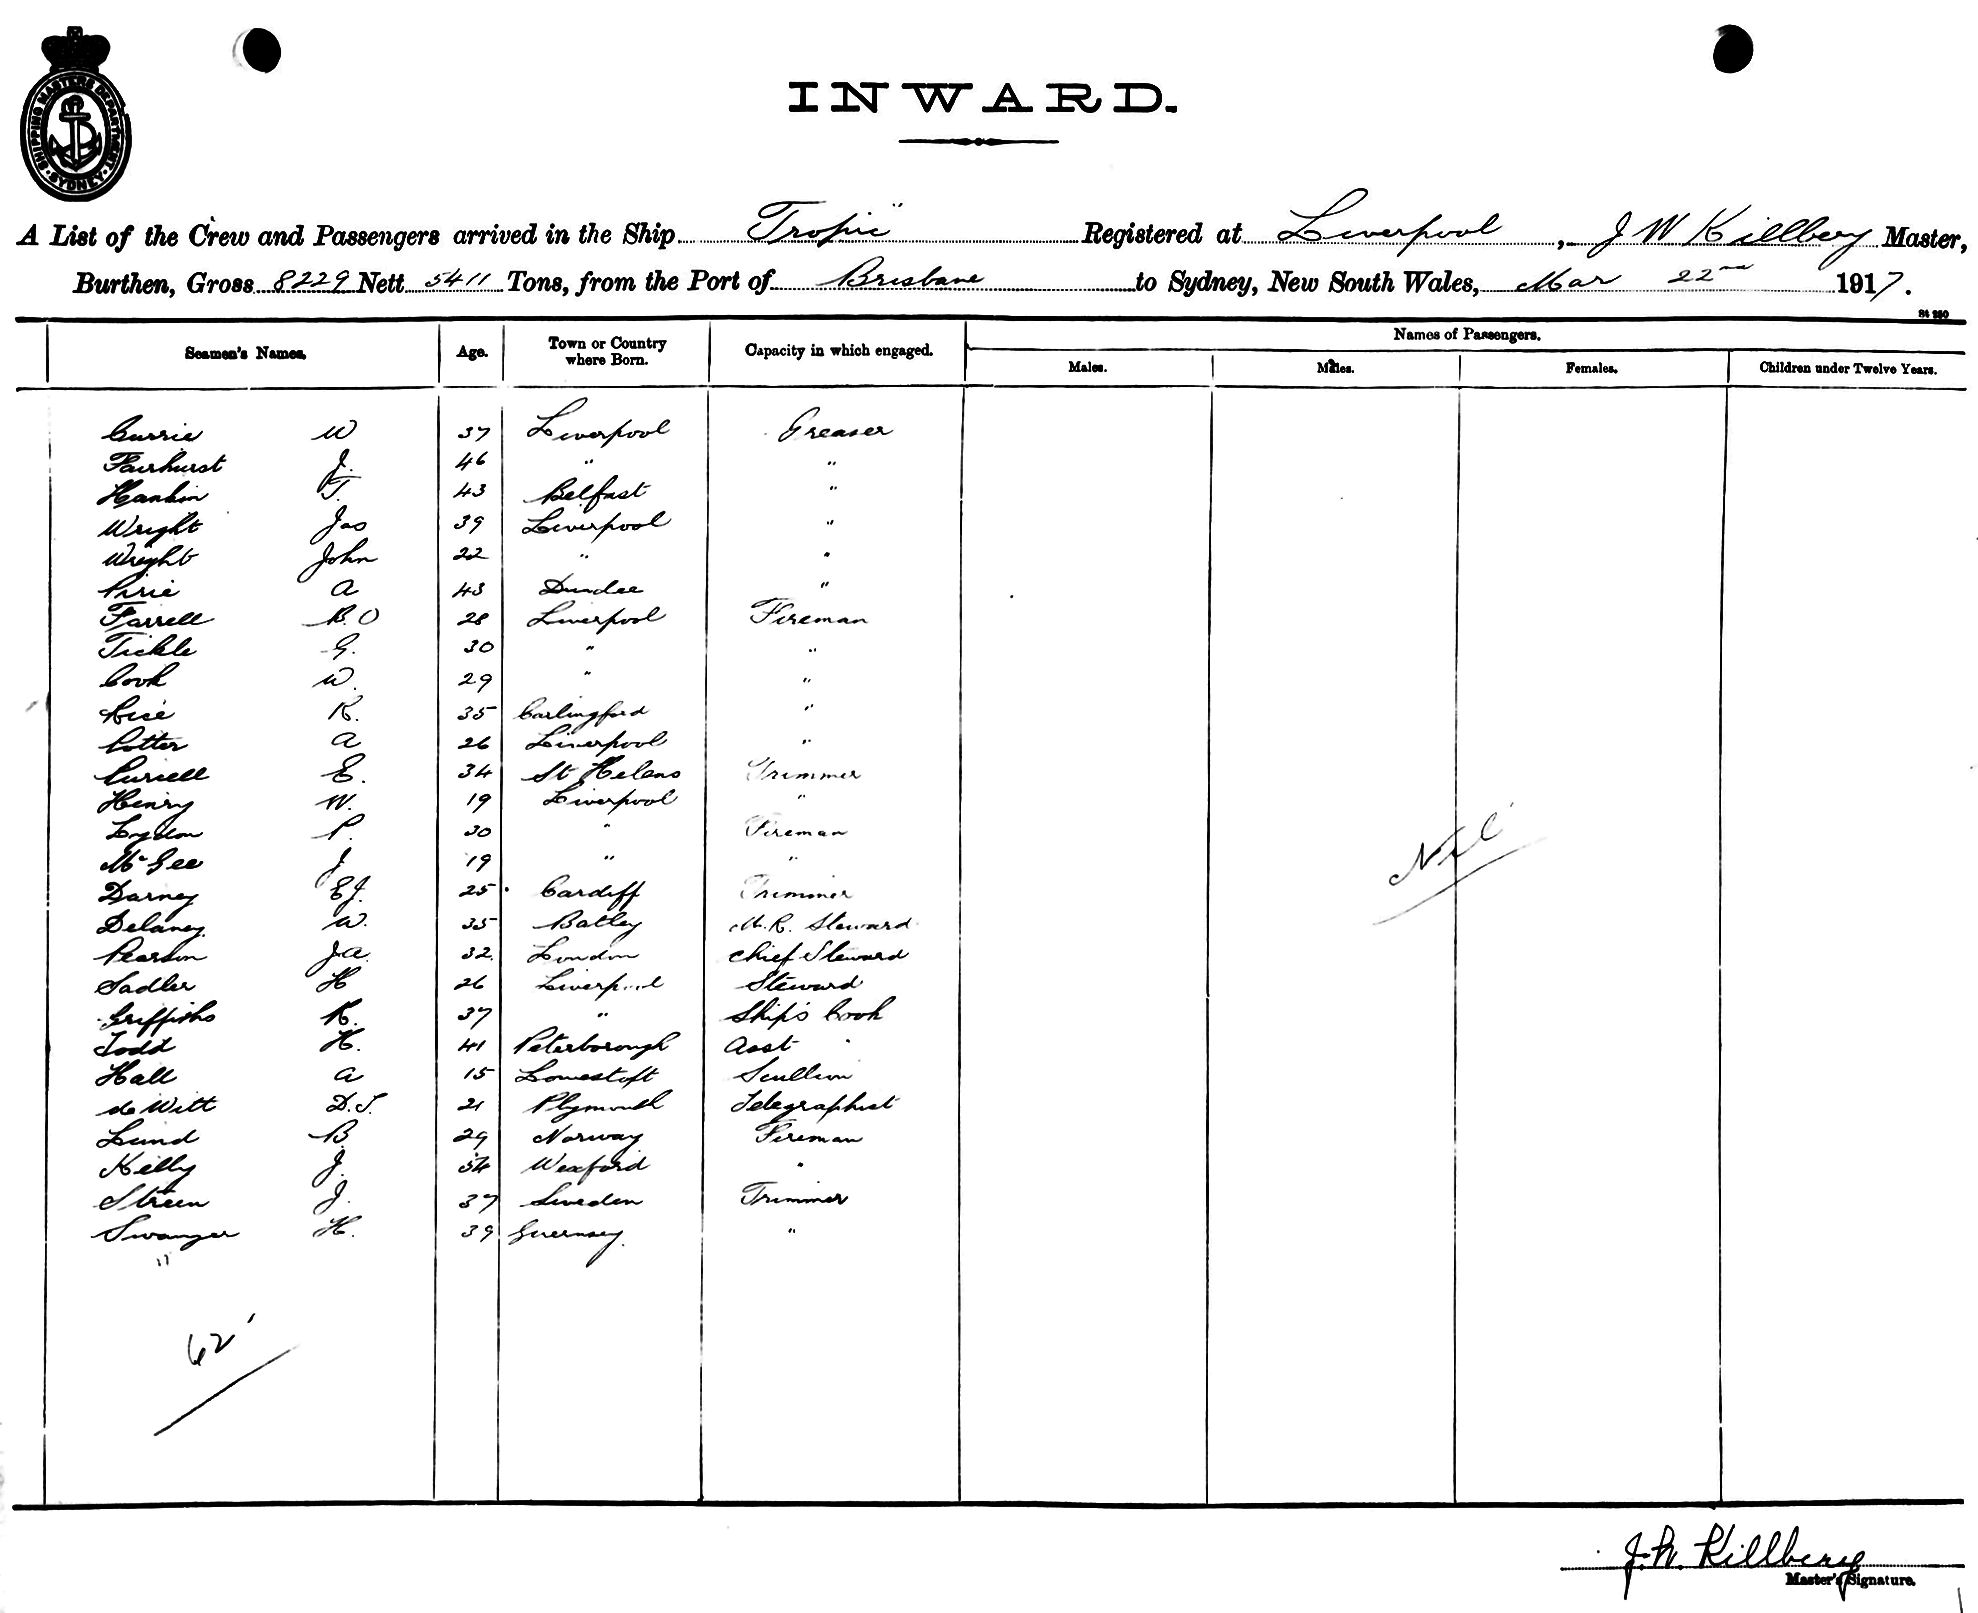 SHIPPING MASTERS DEPARTMENT
SYDNEY
INWARD.
A List of the Crew and Passengers arrived in the Ship "Tropic" Registered at Liverpool, J W Killbery Master,
Burthen, Gross 8229 Nett 5411 Tons, from the Port of Brisbane to Sydney, New South Wales, Mar 22nd 1917.
St 250
Seamen's Names. Age. Town or Country where Born. Capacity in which engaged. Names of Passengers.
Males. Males. Females. Children under Twelve Years.
Currie W 37 Liverpool Greaser
Fairhurst J. 46 " "
Hankin T. 43 Belfast "
Wright Jas 39 Liverpool "
Wright John 22 " "
Pirie A 43 Dundee "
Farrell B.O 28 Liverpool Fireman
Tickle G. 30 " "
Cook W. 29 " "
Rice R. 35 Carlingford "
Potter A 26 Liverpool "
Purcell E. 34 St Helens Trimmer
Henry W. 19 Liverpool "
Lydon P. 30 " Fireman
McGee J 19 " "
Darney E.J. 25 Cardiff Trimmer
Delaney W. 35 Batley M.R. Steward
Pearson J.A. 32 London Chief Steward
Sadler H 26 Liverpool Steward
Griffiths R. 37 " Ship's Cook
Todd H. 41 Peterborough Asst "
Hall A 15 Lowestoft Scullion
de Witt D.J. 21 Plymouth Telegraphist
Lund B 29 Norway Fireman
Kelly J. 54 Wexford "
Streen J. 37 Sweden Trimmer
Swanger H. 39 Guernsey "
"
Nil
62
J.W. Killbery
Master's Signature.